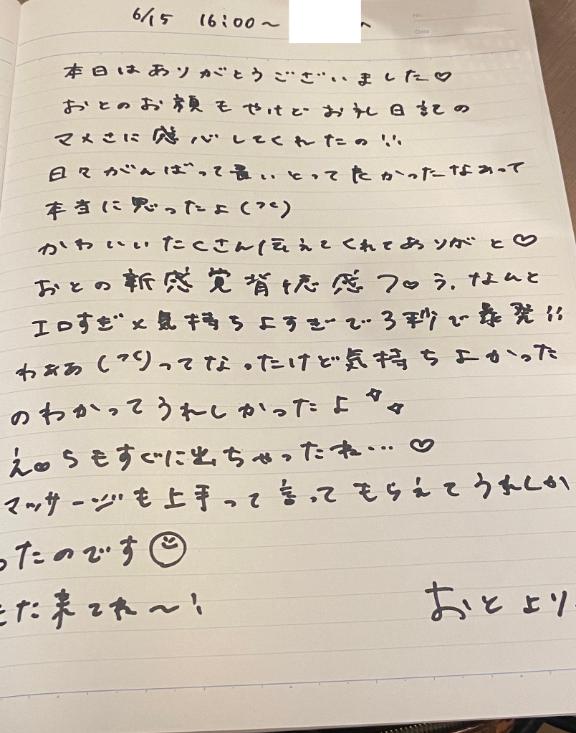 6/15 16:00〜 へ
本日はありがとうございました♡
おとのお顔もやけどお礼日記の
マメさに感心してくれたの!!
日々がんばって書いとってよかったなあって
本当に思ったよ
かわいいたくさん伝えてくれてありがと♡
おとの新感覚背徳感フ♡ラ、なんと
エロすぎ×気持ちよすぎで3秒で暴発!!
わぁぁ ってなったけど気持ちよかった
のわかってうれしかったよ
え♡ちもすぐに出ちゃったね…♡
マッサージも上手って言ってもらえてうれしか
ったのです
た来てね〜!
おとより